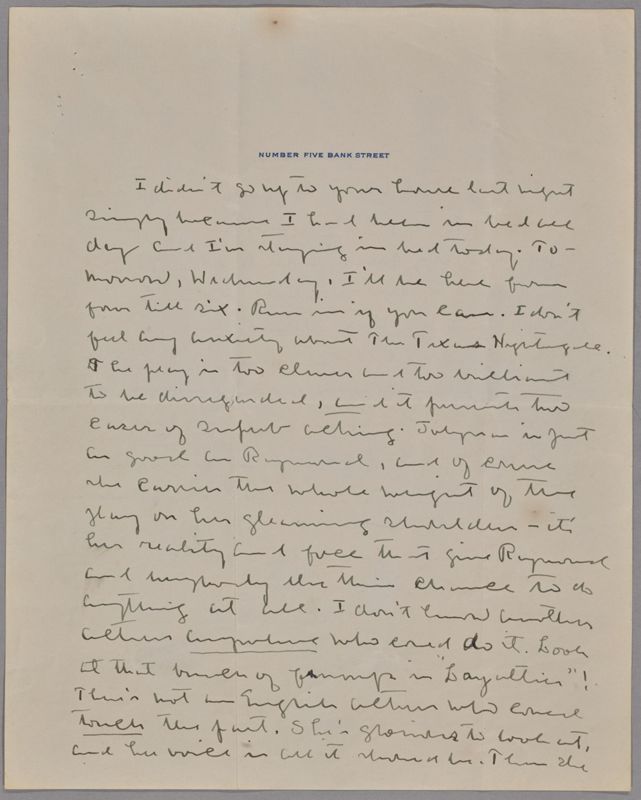 NUMBER FIVE BANK STREET
I didn't go up to your house last night
simply because I had been in bed all
day and I'm staying in bed today. To-
morrow, Wednesday, I'll be here from
four till six. Run in if you can. I don't
feel any anxiety about The Texas Nightingale.
The play is too clever and too brilliant
to be disregarded, and it presents two
cases of superb acting. Jolyn is just
as good as Raymond, and of course
she carries the whole weight of the
play on her gleaming shoulders - it's
her reality and force that give Raymond
and everybody else their chance to do
anything at all. I don't know another
actress anywhere who could do it. Look
at that bunch of frumps in "Loyalties"!
There's not an English actress who could
touch this part. She's glorious to look at,
and her voice is all it should be. Then she